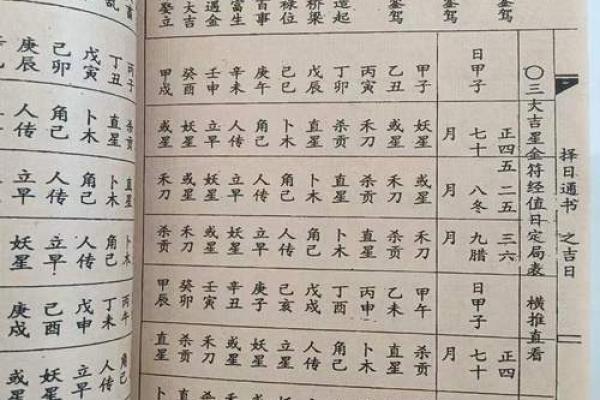 择日通书 之吉日
〇三大吉星金符经值日定局表 横推直看
正四五 二五 三六 正四
日甲子 七十 八冬 九腊 日甲子 七十
月 月 月 月
甲子 妖星 或星 禾刀 甲午 杀贡
乙丑 或星 禾刀 杀贡 乙未 直星
丙寅 禾刀 杀贡 直星 丙申 卜木
造起 丁卯 杀贡 直星 卜木 丁酉 角己
桥梁 戊辰 直星 卜木 角己 戊戌 人传
禄位 己巳 卜木 角己 人传 己亥 立星
百事 庚午 角己 人传 立早 庚子 妖星
富生 辛未 人传 立早 妖星 辛丑 或星
遇金 壬申 立早 妖星 或星 壬寅 禾刀
大吉 癸酉 妖星 或星 禾刀 癸卯 杀贡
娶立 甲戌 或星 禾刀 杀贡 甲辰 直星
丙子
丁丑 直星 卜木 角己 丁未 人传
戊寅 卜木 角己 人传 戊申 立早
己卯 角己 人传 立早 己酉 妖星
庚辰 人传 立早 妖星 庚戌 或星